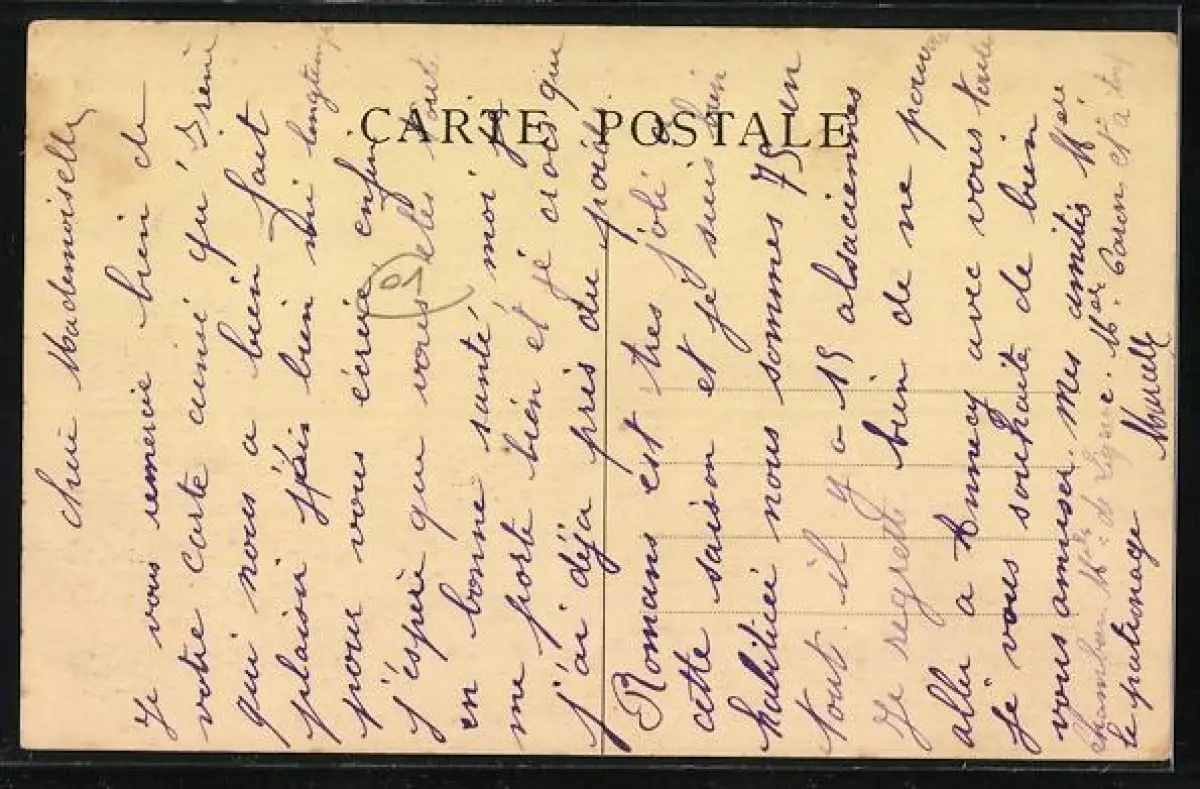 CARTE POSTALE
Chère Mademoiselle
Je vous remercie bien de
votre carte ainsi qu'Irène
qui nous a bien fait
plaisir j'ais bien mi longtemps
pour vous écrire enfin
j'espère que vous etes tout
en bonne santé, moi je
me porte bien et je crois que
j'ai déja pris du poids
Romans est très joli e
cette saison et je suis bien
habituée nous sommes 75 en
tout il y a 15 alsaciennes
Je regrette bien de ne pouvoir
aller a Annecy avec vous toute
je vous souhaite de bien
vous amuser. Mes amitiés Melle
de Caron et à tout
le patronage
Marcelle